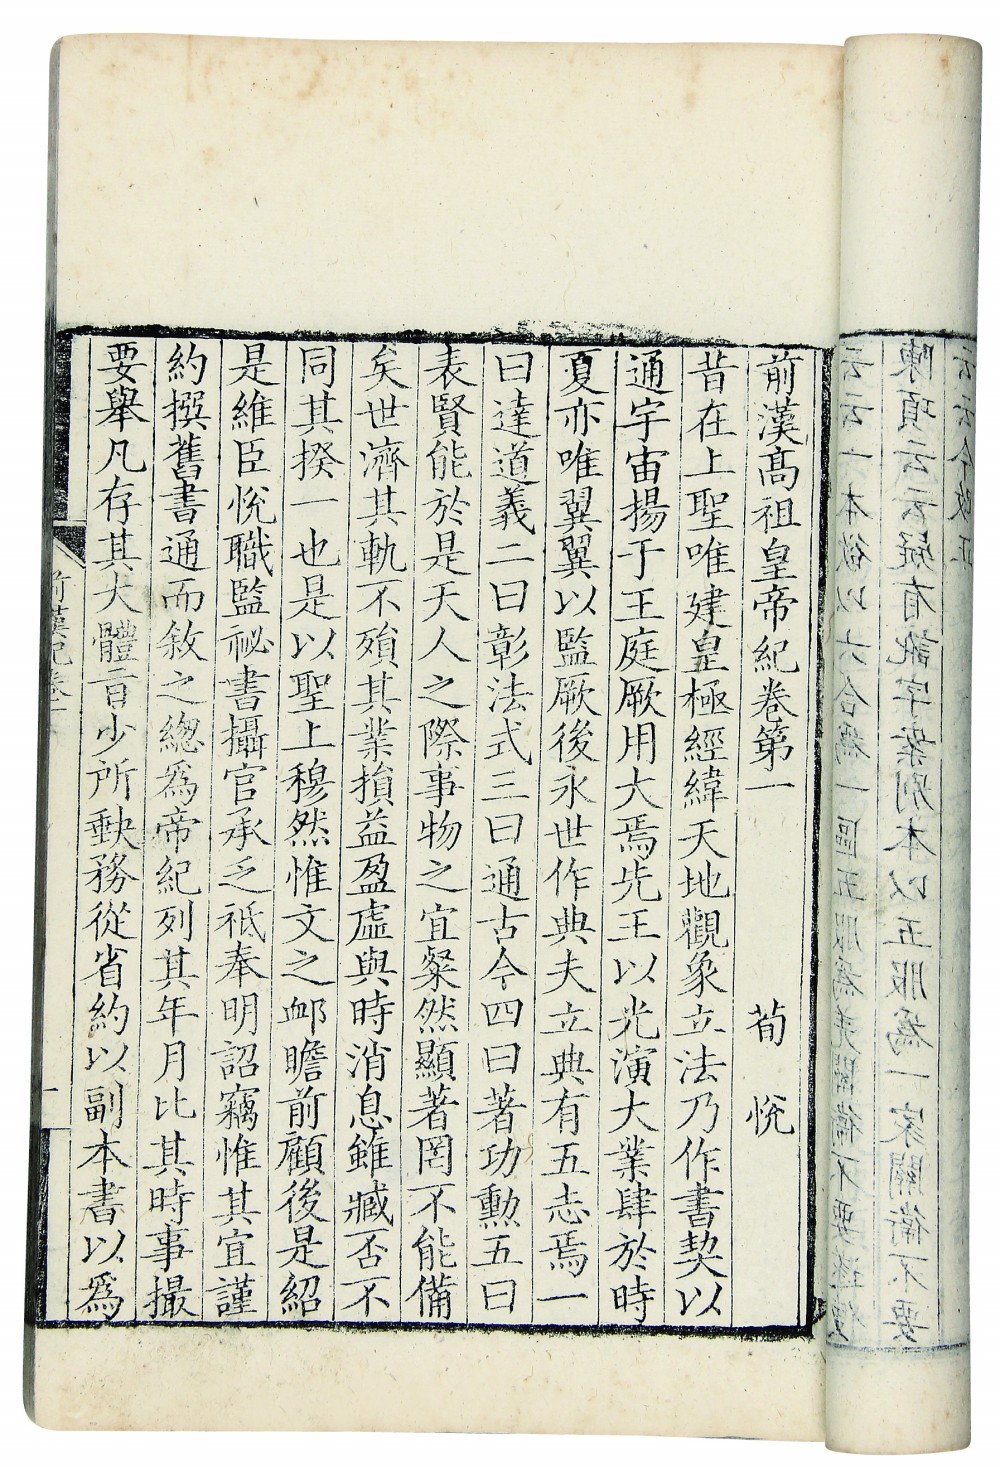 前漢高祖皇帝紀卷第一 荀悅
昔在上聖唯建皇極經緯天地觀象立法乃作書契以
通宇宙揚于王庭厥用大焉先王以光演大業肆於時
夏亦唯翼翼以監厥後永世作典夫立典有五志焉一
曰達道義二曰彰法式三曰通古今四曰著功勲五曰
表賢能於是天人之際事物之宜粲然顯著罔不能備
矣世濟其軌不殞其業損益盈虛與時消息雖臧否不
同其揆一也是以聖上穆然惟文之卹瞻前顧後是紹
是維臣悅職監祕書攝官承乏祗奉明詔竊惟其宜謹
約撰舊書通而敘之緫爲帝紀列其年月比其時事撮
要舉凡存其大體旨少所缺務從省約以副本書以爲
前漢紀卷一
一